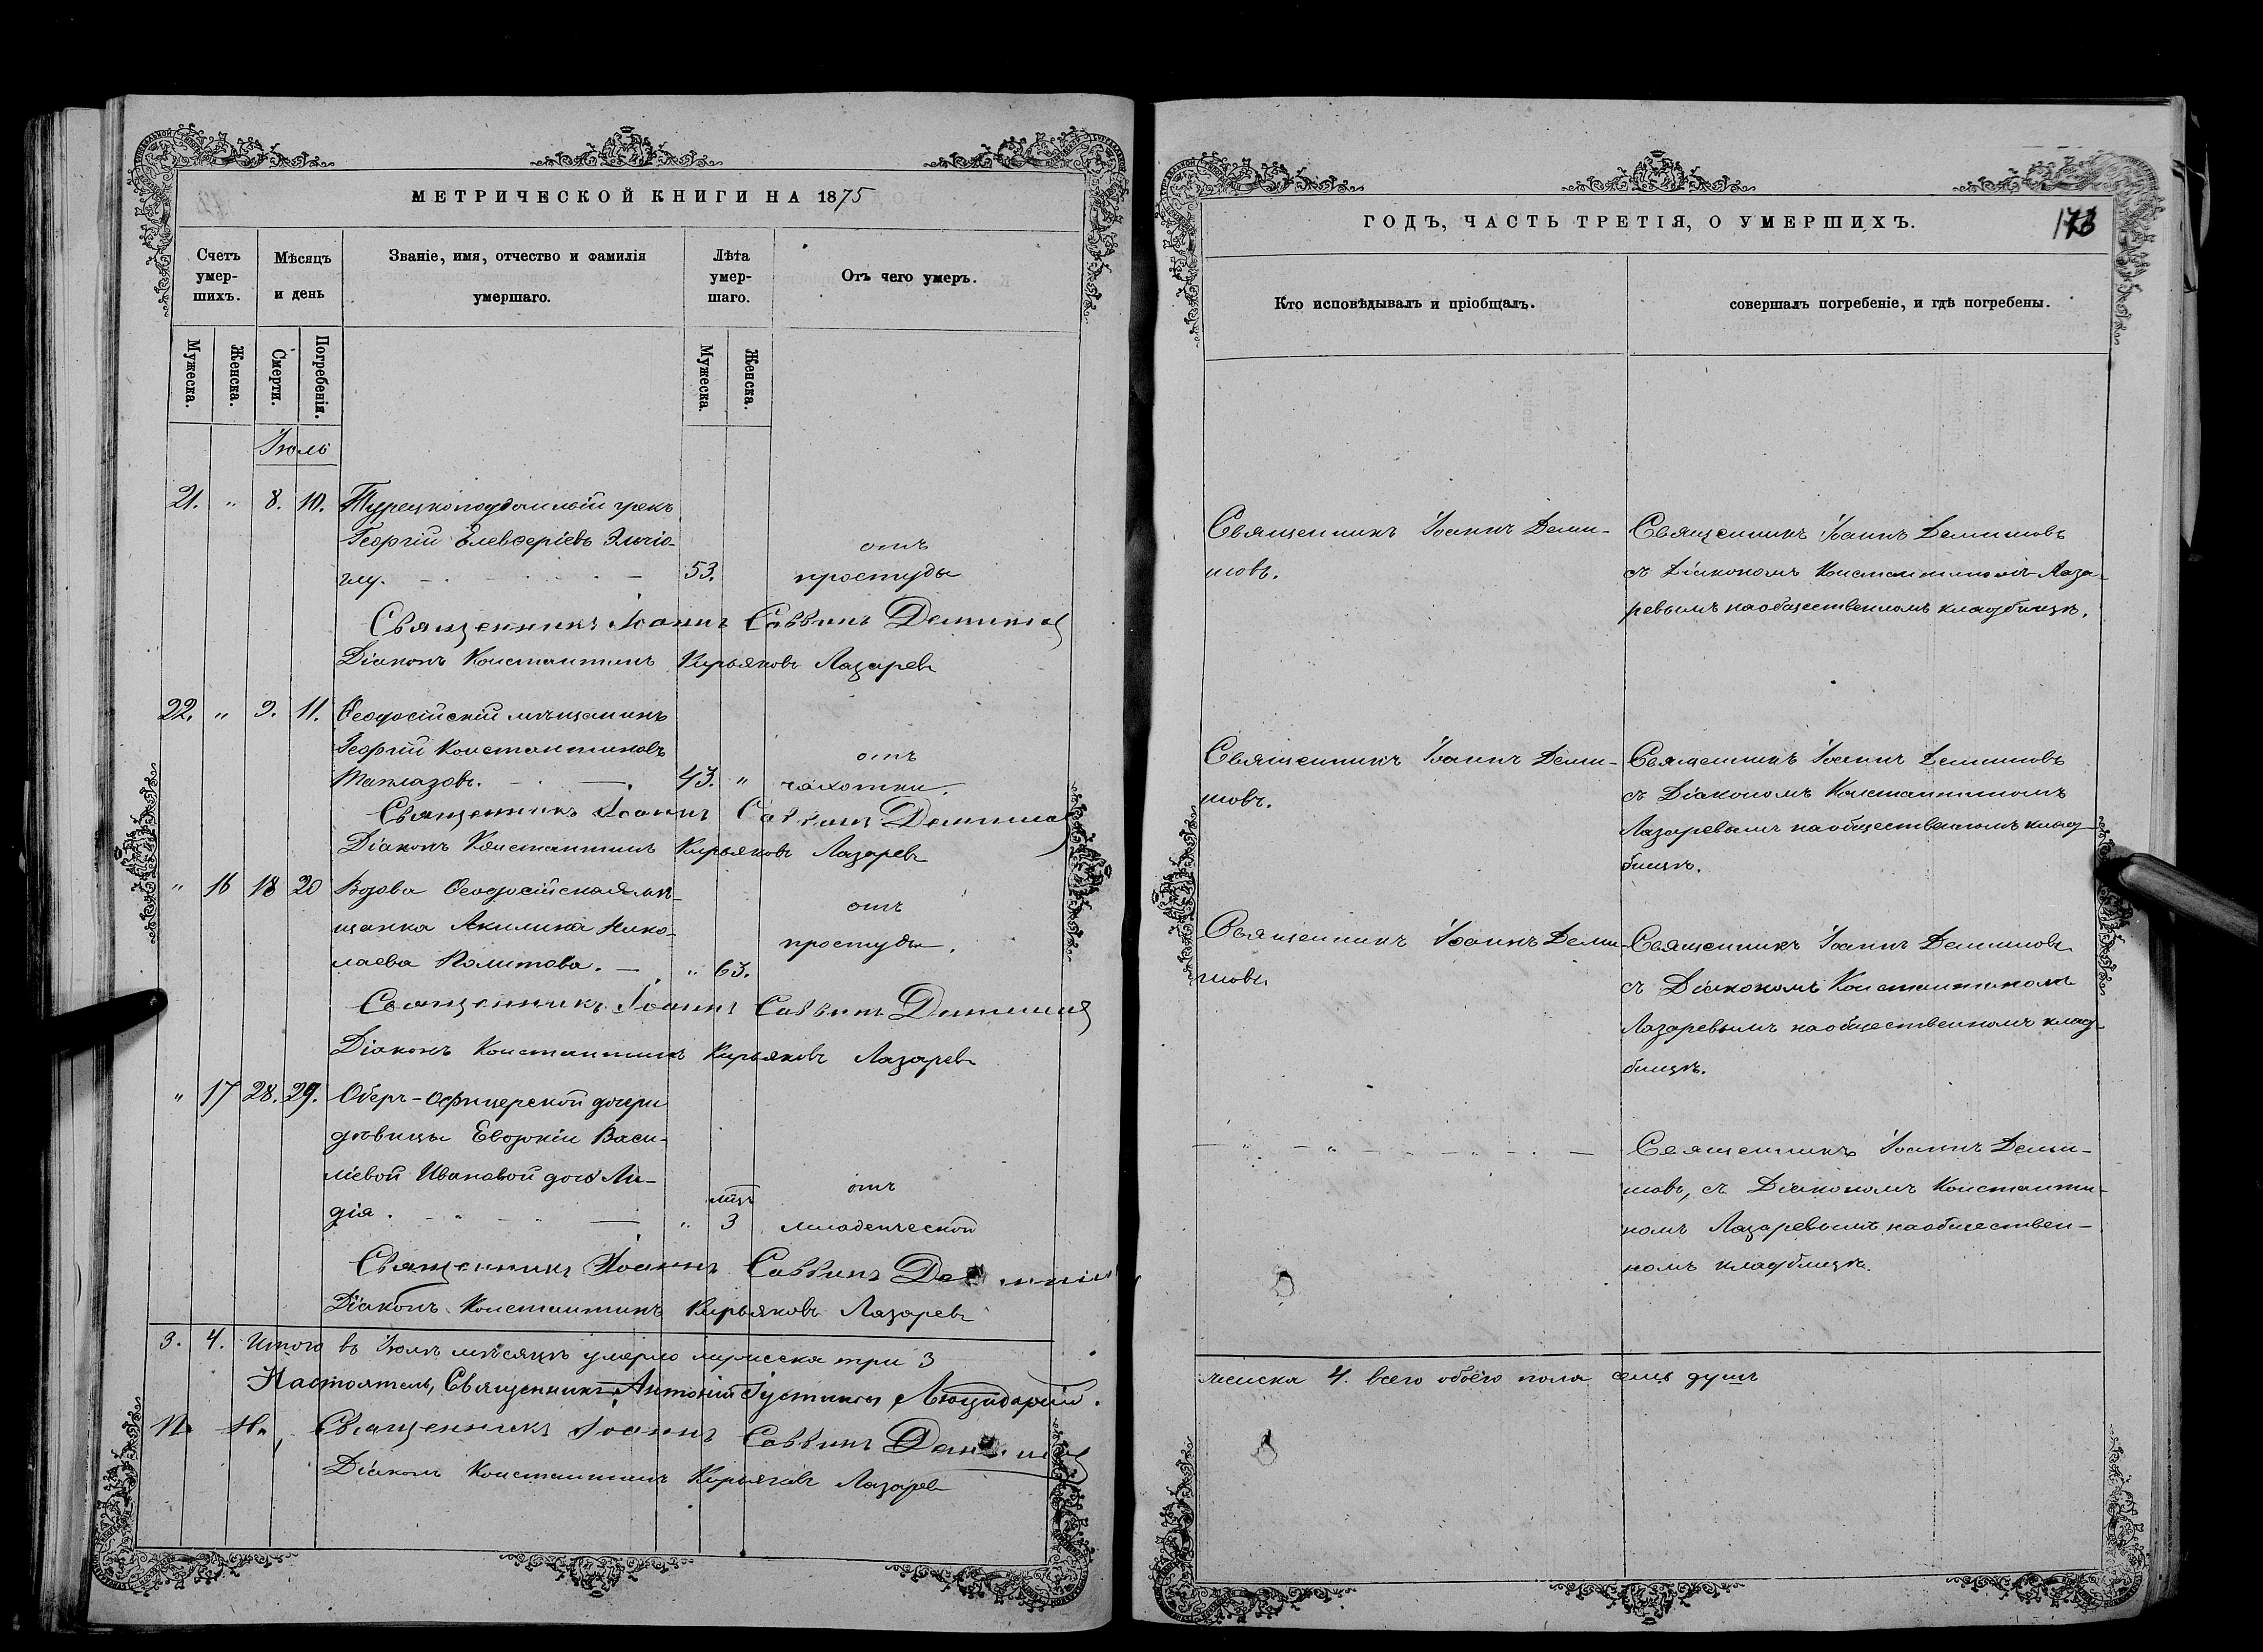 МЕТРИЧЕСКОЙ КНИГИ НА 1875
Счетъ умершихъ.
Мѣсяцъ и день
Званіе, имя, отчество и фамилія умершаго.
Лѣта умершаго.
Отъ чего умеръ.
Мужеска.
Женска.
Смерти.
Погребенія.
Мужеска.
Женска.
Іюль
21. " 8. 10. Турецкоподданный грекъ
Георгій Елевѳеріевъ Эльчіо-
глу. 53. отъ простуды
Священникъ Іоаннъ Саввинъ Деминовъ
Діаконъ Константинъ Кирьяковъ Лазаревъ
22. " 9. 11. Ѳеодосійскій мѣщанинъ
Георгій Константиновъ
43. " отъ чахотки.
Священникъ Іоаннъ Саввинъ Деминовъ
Діаконъ Константинъ Кирьяковъ Лазаревъ
" 16 18 20 Вдова Ѳеодосійская мѣ-
щанка Акилина Нико-
лаева Политова. " 63. отъ простуды.
Священникъ Іоаннъ Саввинъ Деминовъ
Діаконъ Константинъ Кирьяковъ Лазаревъ
" 17 28. 29. Оберъ-офицерской дочери
дѣвицы Евдокіи Васи-
ліевой Ивановой дочь Ли-
дія. " мцъ 3 отъ младенческой
Священникъ Іоаннъ Саввинъ Деминовъ
Діаконъ Константинъ Кирьяковъ Лазаревъ
3. 4. Итого въ Іюлѣ мѣсяцѣ умерло мужеска три 3
Настоятель, Священникъ Антоній Іустиновъ
Священникъ Іоаннъ Саввинъ Деминовъ
Діаконъ Константинъ Кирьяковъ Лазаревъ
ГОДЪ, ЧАСТЬ ТРЕТІЯ, О УМЕРШИХЪ.
173
Кто исповѣдывалъ и пріобщалъ.
совершалъ погребеніе, и гдѣ погребены.
Священникъ Іоаннъ Деми-
новъ.
Священникъ Іоаннъ Деминовъ
съ Діакономъ Константиномъ Лаза-
ревымъ на общественномъ кладбищѣ.
Священникъ Іоаннъ Деми-
новъ.
Священникъ Іоаннъ Деминовъ
съ Діакономъ Константиномъ
Лазаревымъ на общественномъ клад-
бищѣ.
Священникъ Іоаннъ Деми-
новъ
Священникъ Іоаннъ Деминовъ
съ Діакономъ Константиномъ
Лазаревымъ на общественномъ клад-
бищѣ.
Священникъ Іоаннъ Деми-
новъ, съ Діакономъ Константи-
номъ Лазаревымъ на обществен-
номъ кладбищѣ.
женска 4. всего обоего пола семь душъ